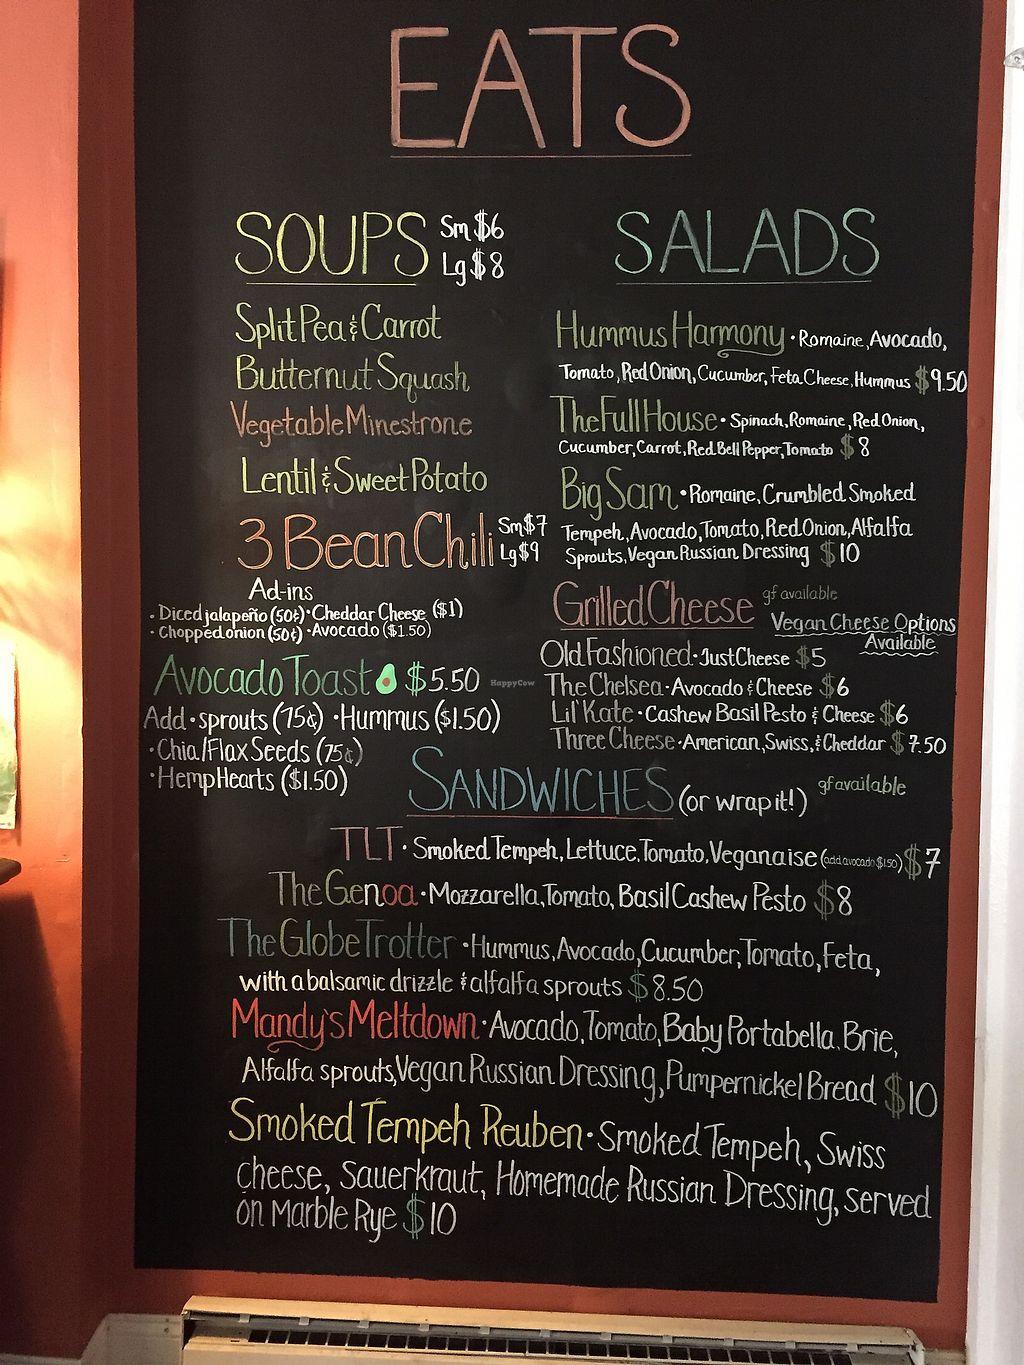 EATS
SOUPS Sm $6
Lg $8
Split Pea & Carrot
Butternut Squash
Vegetable Minestrone
Lentil & Sweet Potato
3 Bean Chili Sm $7
Lg $9
Ad-ins
· Diced jalapeño (50¢) · Cheddar Cheese ($1)
· Chopped onion (50¢) · Avocado ($1.50)
Avocado Toast $5.50
Add · sprouts (75¢) · Hummus ($1.50)
· Chia/Flax Seeds (75¢)
· Hemp Hearts ($1.50)
SALADS
Hummus Harmony · Romaine, Avocado,
Tomato, Red Onion, Cucumber, Feta Cheese, Hummus $9.50
The Full House · Spinach, Romaine, Red Onion,
Cucumber, Carrot, Red Bell Pepper, Tomato $8
Big Sam · Romaine, Crumbled Smoked
Tempeh, Avocado, Tomato, Red Onion, Alfalfa
Sprouts, Vegan Russian Dressing $10
Grilled Cheese gf available
Vegan Cheese Options
Available
Old Fashioned · Just Cheese $5
The Chelsea · Avocado & Cheese $6
Lil' Kate · Cashew Basil Pesto & Cheese $6
Three Cheese · American, Swiss, & Cheddar $7.50
HappyCow
SANDWICHES (or wrap it!) gf available
TLT · Smoked Tempeh, Lettuce, Tomato, Veganaise (add avocado $1.50) $7
The Genoa · Mozzarella, Tomato, Basil Cashew Pesto $8
The Globe Trotter · Hummus, Avocado, Cucumber, Tomato, Feta,
with a balsamic drizzle & alfalfa sprouts $8.50
Mandy's Meltdown · Avocado, Tomato, Baby Portabella, Brie,
Alfalfa sprouts, Vegan Russian Dressing, Pumpernickel Bread $10
Smoked Tempeh Reuben · Smoked Tempeh, Swiss
cheese, Sauerkraut, Homemade Russian Dressing, served
on Marble Rye $10